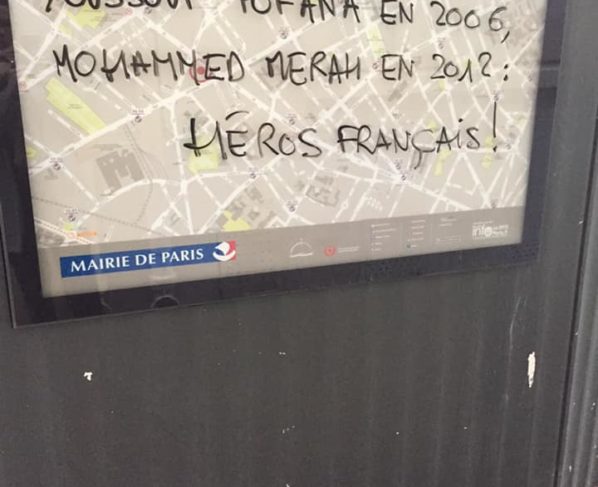 FOFANA EN 2006,
MOHAMMED MERAH EN 2012:
HÉROS FRANÇAIS!
MAIRIE DE PARIS